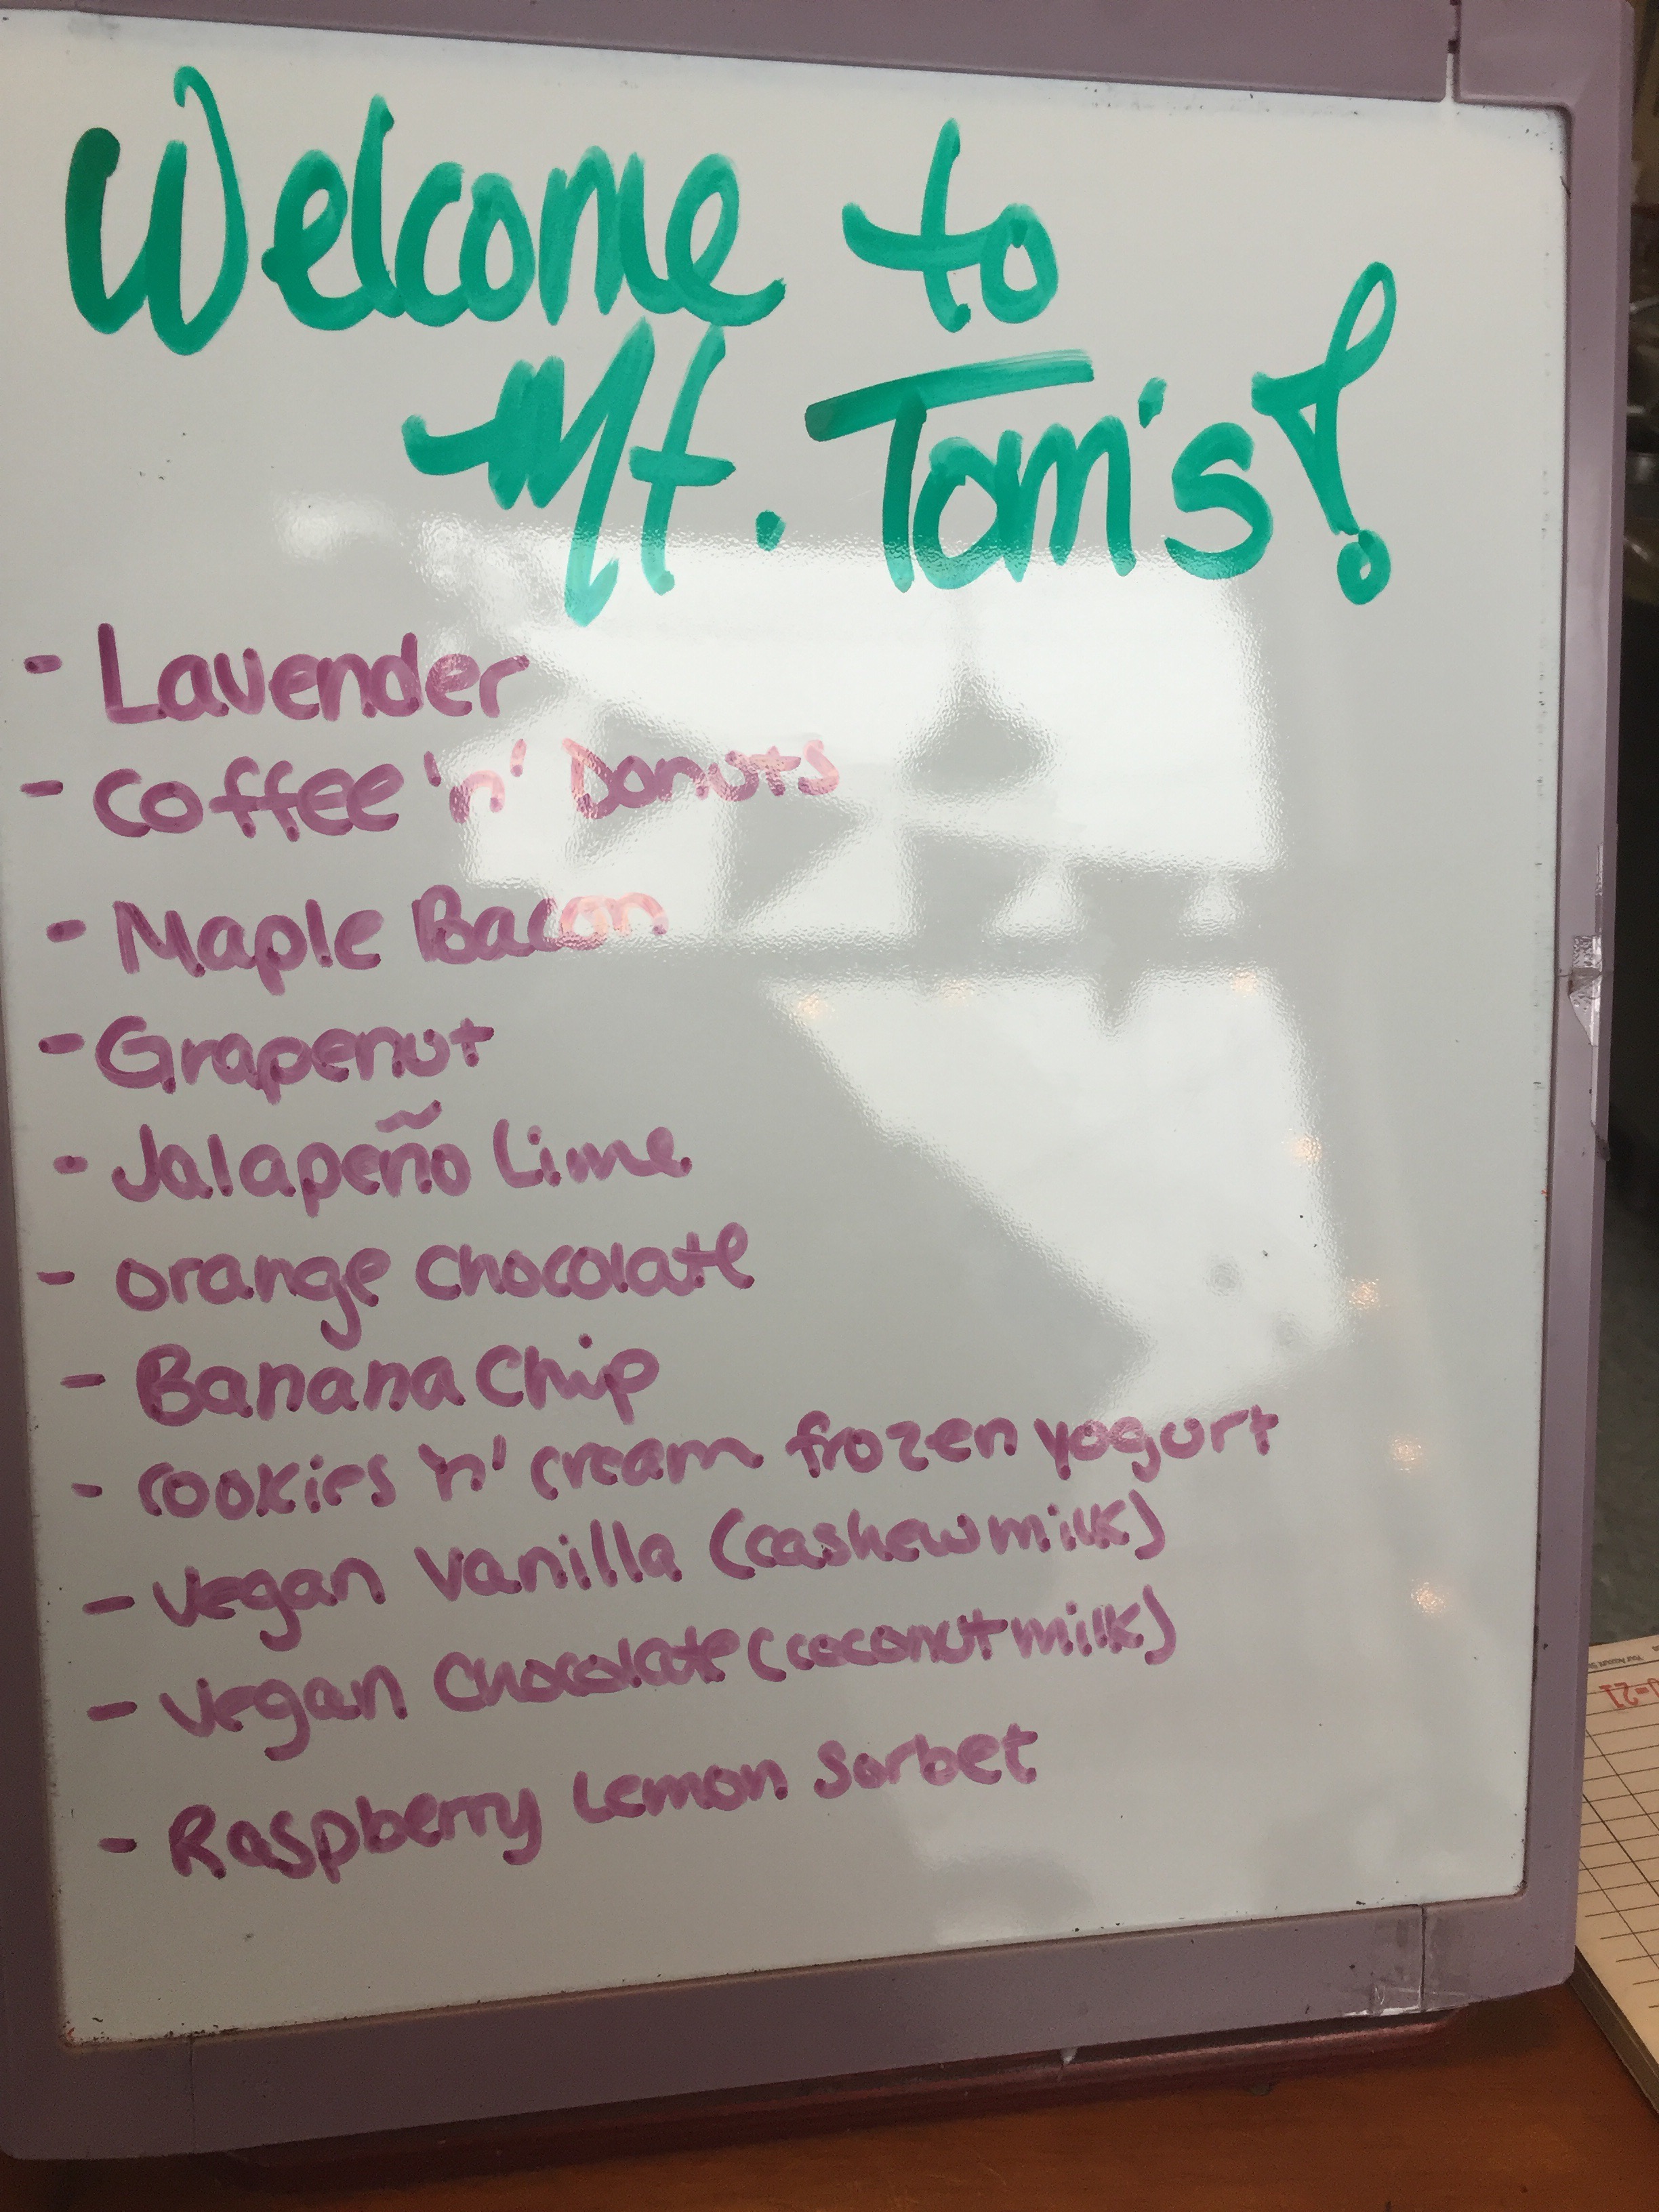 Welcome to
Mt. Tom's!
- Lavender
- Coffee 'n' Donuts
- Maple Bacon
- Grapenut
- Jalapeño Lime
- orange chocolate
- Banana Chip
- cookies 'n' cream frozen yogurt
- vegan vanilla (cashew milk)
- vegan chocolate (coconut milk)
- Raspberry Lemon Sorbet